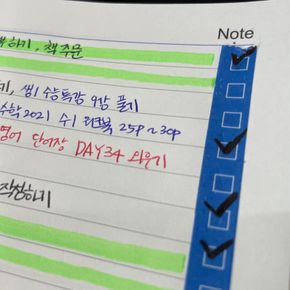 Note
하기, 책 주문
기, 생1 수능특강 9강 풀기
수학 2021 수1 워크북 25P~30P
영어 단어장 DAY34 외우기
작성하기